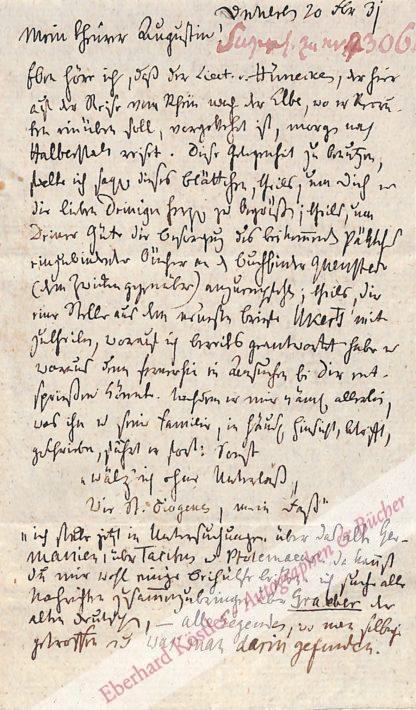 20 Fbr 31
Mein theurer Augustin!
Suppl. zu 306
Eben höre ich, daß der Lieut. v. Hünecken, der hier
auf der Reise vom Rhein nach der Elbe, wo er Recru-
ten einüben soll, vorgekehrt ist, morgen nach
Halberstadt reist. Diese Gelegenheit zu benutzen,
ich dieses Blättchen, theils, um Dich u
die lieben Deinigen zu begrüßen; theils, um
Deiner Güte die Besorgung des beikommenden Päckchens
einzubindender Bücher an d. Buchbinder Quenstedt
(dem Zwicken gegenüber) anzuvertrauen; theils, Dir
eine Stelle aus dem neuesten Briefe Ukerts mit
zutheilen, worauf ich bereits geantwortet habe u
woraus dem fernerhin ein Ansuchen bei Dir ent-
sprießen könnte. Nachdem er mir allerlei,
was ihn u seine Familie, in häusl. Hinsicht, betrifft,
geschrieben, fährt er fort: Sonst
"wälz' ich ohne Unterlaß,
wie St. Diogenes, mein Faß"
"ich stecke jetzt in Untersuchungen über das alte Ger-
manien, über Tacitus u Ptolemaeus, da kannst
du mir wohl einige Beihülfe leisten, ich suche alle
Nachrichten zusammenzubringen über Graeber der
alten Deutschen, – alle Gegenden, wo man selbige
getroffen u was man darin gefunden.
Eberhard Köstler · Autographen & Bücher